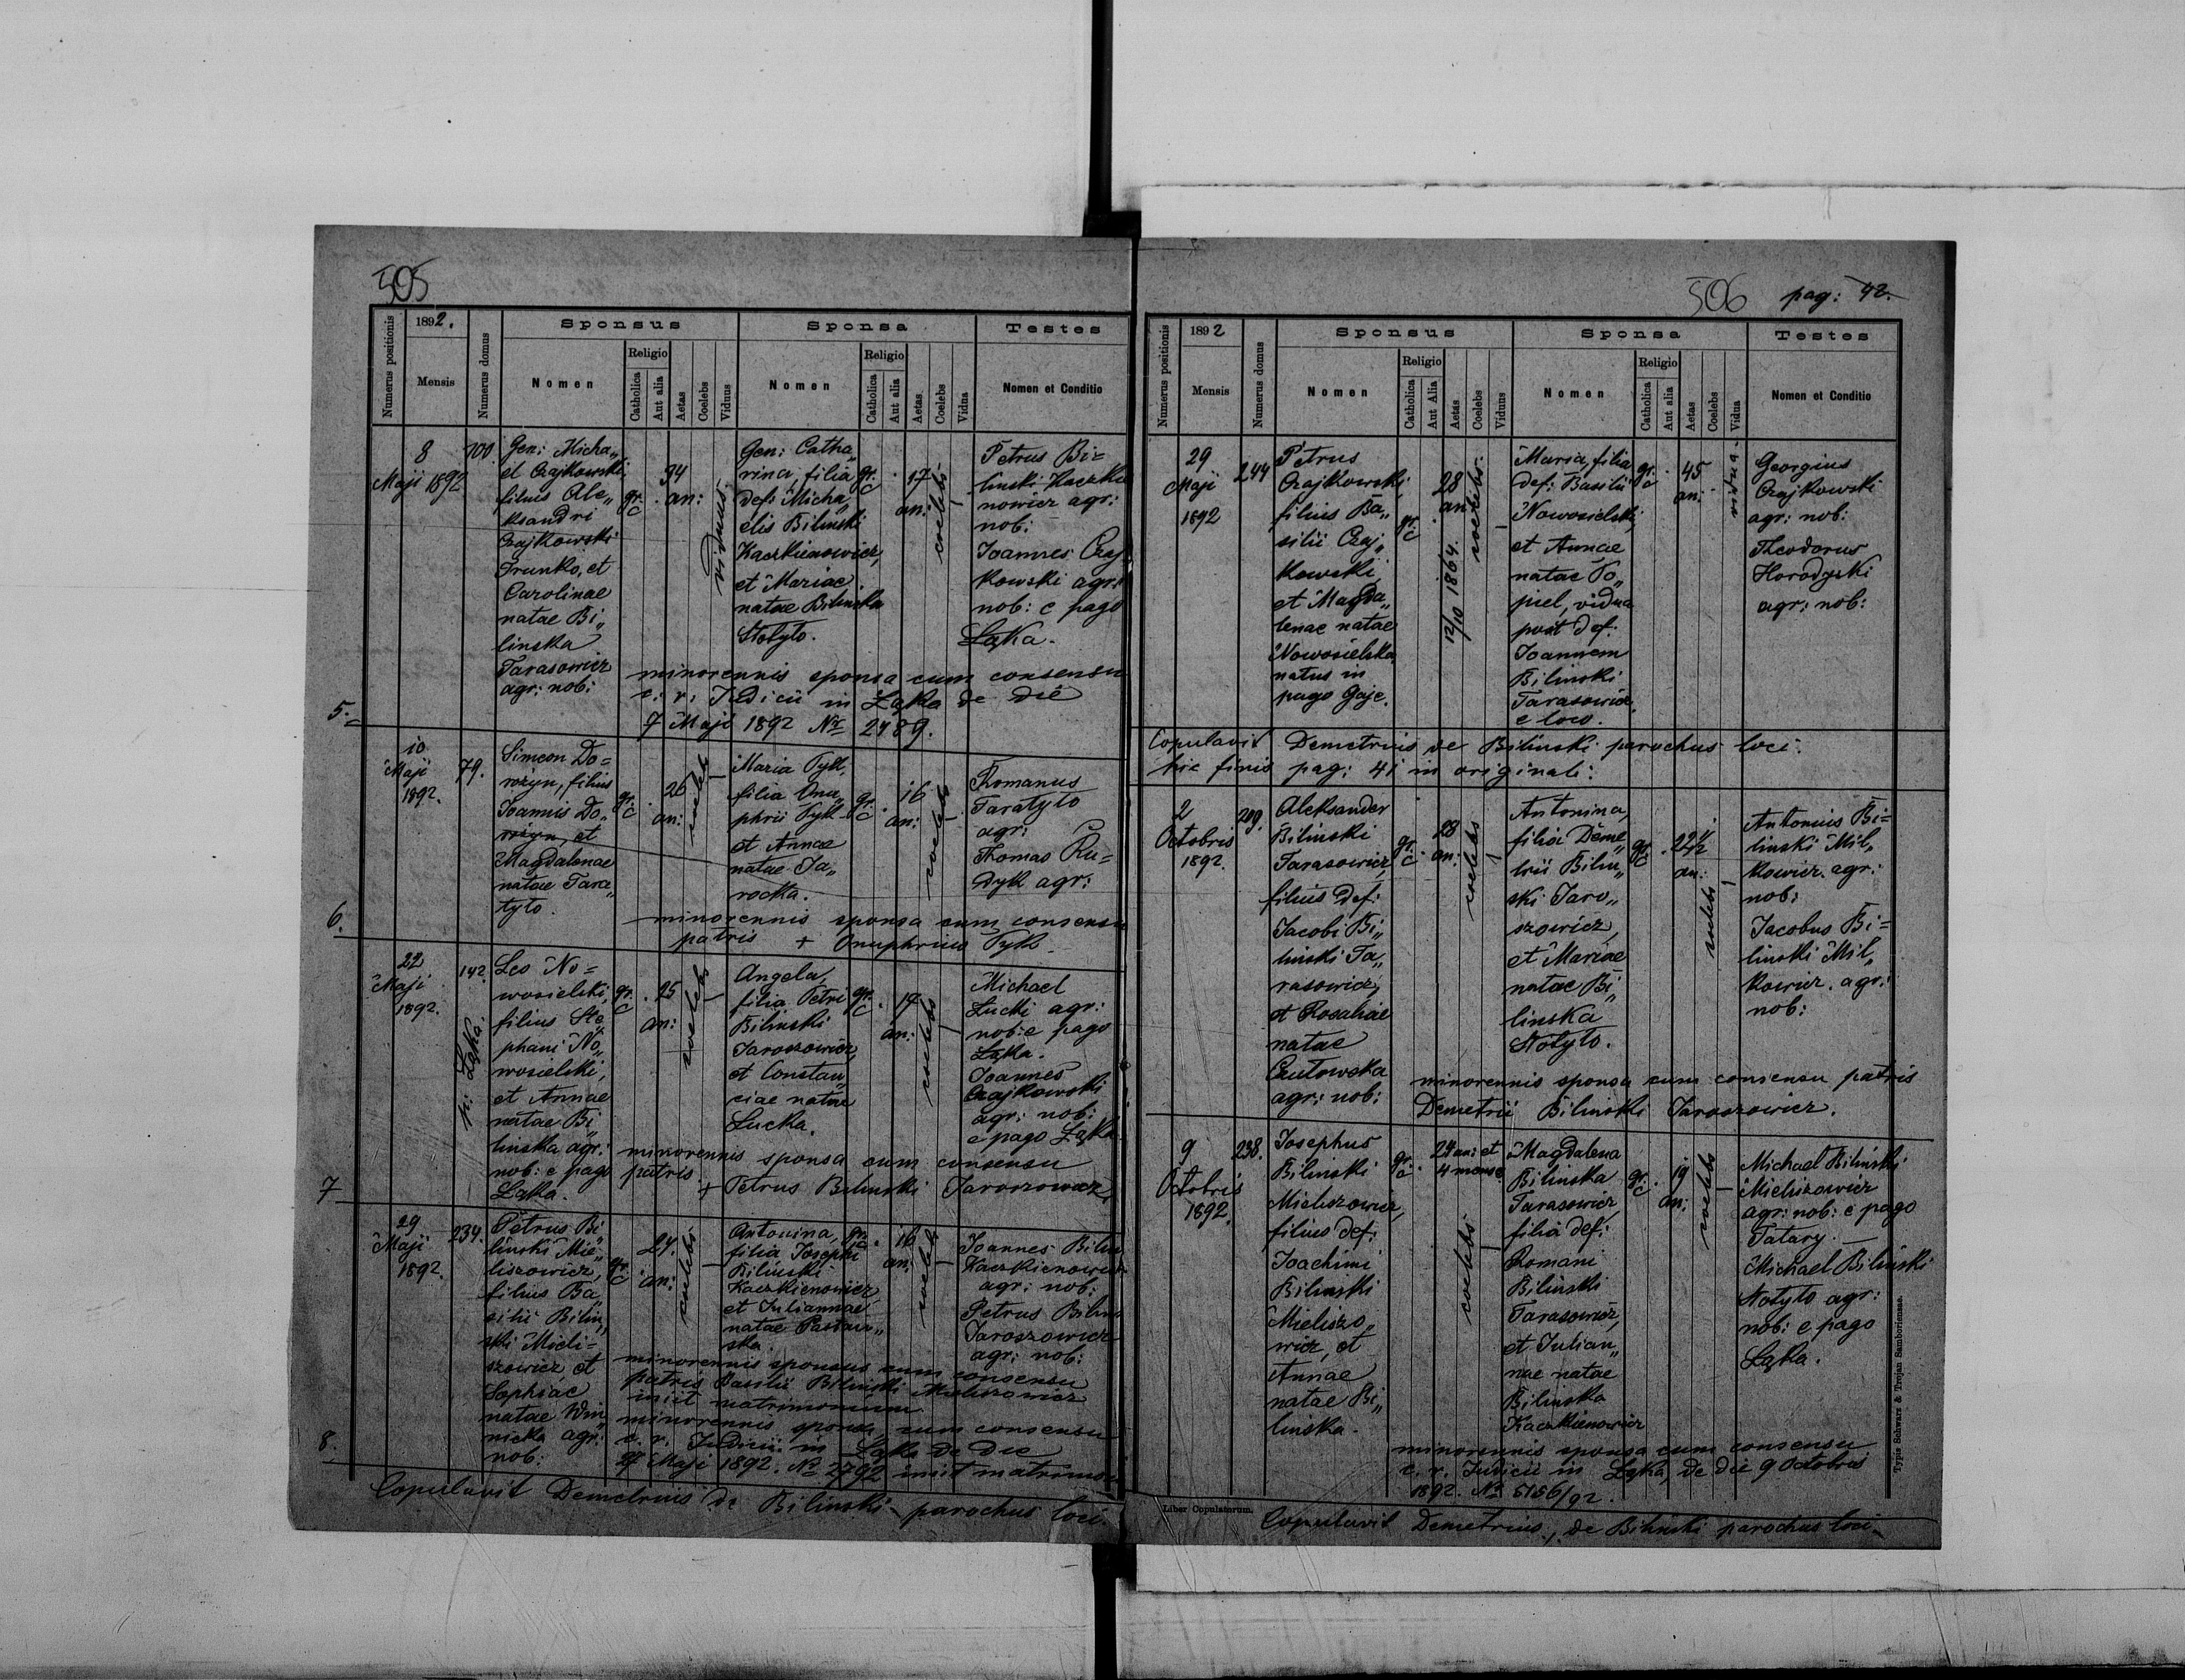 505
Numerus positionis
1892.
Mensis
Numerus domus
Sponsus
Nomen
Religio
Catholica
Aut alia
Aetas
Coelebs
Viduus
Sponsa
Nomen
Religio
Catholica
Aut alia
Aetas
Coelebs
Vidua
Testes
Nomen et Conditio
5.
8
Maji 1892
100
Gen: Micha„
el Czajkowski,
filius Ale„
ksandri
Czajkowski
Irunko, et
Carolinae
natae Bi„
linska
Tarasowicz
agr: nob:
gr.
c
34
an:
viduus.
Gen: Catha„
rina, filia
def: Micha„
elis Bilinski
Kaczkienowicz,
et Mariae
natae Bilinska
Stotyto.
gr.
c
17
an:
coelebs.
Petrus Bi=
linski Kaczkie
nowicz agr:
nob:
Joannes Czaj
kowski agr:
nob: e pago
Łąka.
minorennis sponsa cum consensu
c. r. Judicii in Łąka de die
7 Maji 1892 No 2489.
6.
10
Maji
1892.
79.
Simeon Do=
rożyn, filius
Joannis Do„
rożyn, et
Magdalenae
natae Tara„
tyto.
gr.
c
26
an:
coelebs
Maria Tyk,
filia Onu„
phrii Tyk
et Annae
natae Ja„
rocka.
gr.
c
16
an:
coelebs
Romanus
Taratyto
agr:
Thomas Ru=
dyk agr:
minorennis sponsa cum consensu
patris + Onuphrius Tyk.
7
22
Maji
1892.
142
p: Łąka.
Leo No=
wosielski,
filius Ste„
phani No„
wosielski,
et Annae
natae Bi„
linska agr:
nob: e pago
Łąka.
gr.
c
25
an:
coelebs
Angela,
filia Petri
Bilinski
Jaroszowicz,
et Constan„
ciae natae
Łucka.
gr.
c
17
an:
coelebs
Michael
Łucki agr:
nob: e pago
Łąka.
Joannes
Czajkowski
agr: nob:
e pago Łąka
minorennis sponsa cum consensu
patris + Petrus Bilinski Jaroszowicz.
8.
29
Maji
1892.
234.
Petrus Bi„
linski Mie„
liszowicz,
filius Ba„
silii Bilin„
ski Mieli=
szowicz, et
Sophiae
natae Win„
nicka agr:
nob:
gr.
c
24.
an:
coelebs
Antonina,
filia Josephi
Bilinski
Kaczkienowicz,
et Juliannae
natae
ska.
gr.
c
16
an:
coelebs
Joannes Bilin
Kaczkienowicz
agr: nob:
Petrus Bilins
Jaroszowicz
agr: nob:
minorennis sponsus cum consensu
patris Basilii Bilinski Mieliszowicz
iniit matrimonium
minorennis sponsa, cum consensu
c. r. Judicii in Łąka de die
27 Maji 1892. No 2792 iniit matrimon
Copulavit Demetrius de Bilinski parochus loci.
506 pag: 42.
Numerus positionis
1892
Mensis
Numerus domus
Sponsus
Nomen
Religio
Catholica
Aut Alia
Aetas
Coelebs
Viduus
Sponsa
Nomen
Religio
Catholica
Aut alia
Aetas
Coelebs
Vidua
Testes
Nomen et Conditio
29
Maji
1892
244
Petrus
Czajkowski,
filius Ba„
silii Czaj„
kowski,
et Magda„
lenae natae
Nowosielska,
natus in
pago Gaje.
gr.
c
28
an
12/10 1864.
coelebs.
Maria, filia
def: Basilii
Nowosielski,
et Annae
natae Po„
piel, vidua
post def:
Joannem
Bilinski
Tarasowicz,
e loco.
gr.
c
45
an:
vidua.
Georgius
Czajkowski
agr: nob:
Theodorus
Horodyski
agr: nob:
Copulavit Demetrius de Bilinski parochus loci.
hic finis pag: 41 in originali.
2
Octobris
1892.
219.
Aleksander
Bilinski
Tarasowicz,
filius def:
Jacobi Bi„
linski Ta„
rasowicz,
et Rosaliae
natae
agr: nob:
gr.
c
28
an:
coelebs
Antonina,
filia Deme„
trii Bilin„
ski Jaro„
szowicz,
et Mariae
natae Bi„
linska
Stotyto.
gr.
c
22 1/2
an:
coelebs
Antonius Bi=
linski Mil„
kowicz. agr:
nob:
Jacobus Bi=
linski Mil„
kowicz. agr:
nob:
minorennis sponsa cum consensu patris
Demetrii Bilinski Jaroszowicz.
9
Octobris
1892.
238.
Josephus
Bilinski
Mieliszowicz,
filius def:
Joachimi
Bilinski
Mieliszo„
wicz, et
Annae
natae Bi„
linska.
gr.
c
24 an: et
4 mense
coelebs
Magdalena
Bilinska
Tarasowicz,
filia def:
Romani
Bilinski
Tarasowicz,
et Julian„
nae natae
Bilinska
Kaczkienowicz
gr.
c
19
an:
coelebs
Michael Bilinski
Mieliszowicz
agr: nob: e pago
Tatary.
Michael Bilinski
Stotyto agr:
nob: e pago
Łąka.
minorennis sponsa cum consensu
c. r. Judicii in Łąka, de die 9 Octobris
1892. No 5156/92.
Liber Copulatorum.
Copulavit Demetrius, de Bilinski parochus loci.
Typis Schwarz & Trojan Samboriensae.